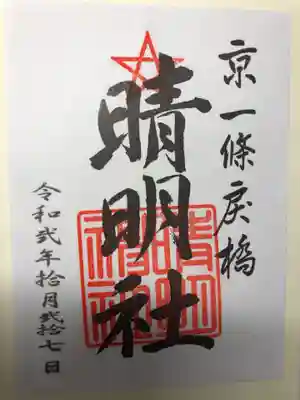 京一條戻橋
晴明社
令和弐年拾月弐拾七日